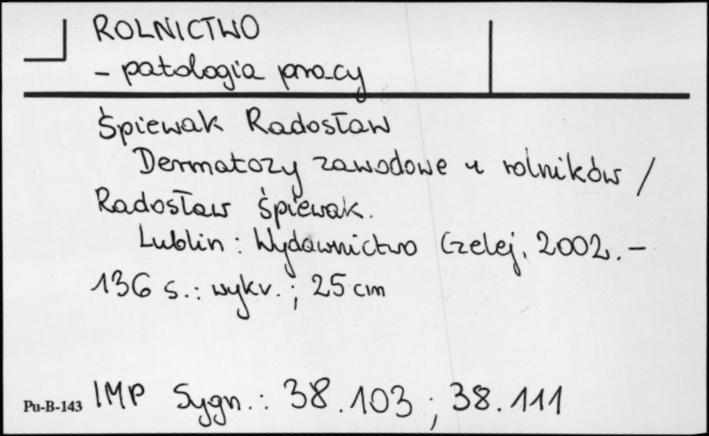 ROLNICTWO
- patologia pracy
Śpiewak Radosław
Dermatozy zawodowe u rolników /
Radosław Śpiewak.
Lublin : Wydawnictwo Czelej, 2002. -
136 s. : wykr. ; 25 cm
Pu-B-143 IMP Sygn. : 38.103 ; 38.111